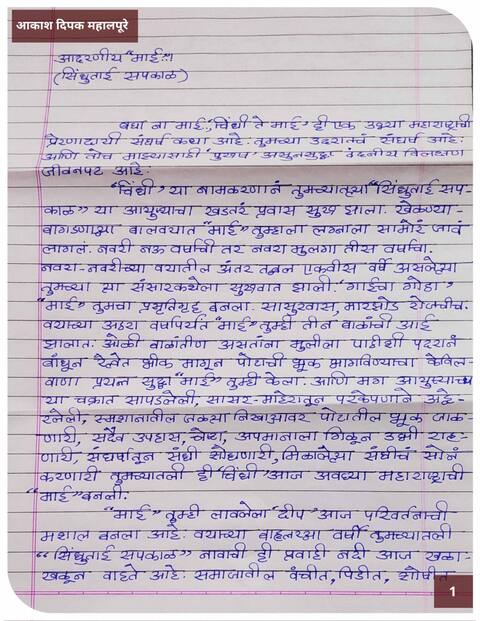 आकाश दिपक महालपूरे
आदरणीय "माई"!
(सिंधुताई सपकाळ)
बघा ना माई, 'चिंधी ते माई' ही एक उभ्या महाराष्ट्राची
प्रेरणादायी संघर्ष कथा आहे. तुमच्या उदरातंच संघर्ष आहे.
आणि तोच माझ्यासाठी 'पुरुष' असूनसुद्धा वंदनीय विलक्षण
जीवनपट आहे.
'चिंधी' या नामकरणानं तुमच्यातल्या "सिंधुताई सप-
काळ" या आयुष्याचा खडतर प्रवास सुरू झाला. खेळण्या-
बागडण्याच्या बालवयात "माई" तुम्हाला लग्नाला सामोरं जावं
लागलं. नवरी नऊ वर्षाची तर नवरा मुलगा तीस वर्षाचा.
नवरा-नवरीच्या वयातील अंतर तब्बल एकवीस वर्षे असलेल्या
तुमच्या ह्या संसारकथेला सुरुवात झाली. 'गाईचा गोठा'
"माई" तुमचा प्रसूतिगृह बनला. सासुरवास, मारझोड रोजचीच.
वयाच्या अठरा वर्षापर्यंत "माई" तुम्ही तीन बाळांची आई
झालात. ओली बाळंतीण असतांना मुलीला पाठीशी पदरानं
बांधून रेल्वेत भीक मागून पोटाची भूक भागविण्याचा केविल-
वाणा प्रयत्न सुद्धा "माई" तुम्ही केला. आणि मग आयुष्याच्या
या चक्रात सापडलेली, सासर-माहेरातून परकेपणाने अव्हे-
रलेली, स्मशानातील जळत्या निखाऱ्यावर पोटातील भूक जाळ-
णारी, सदैव उपहास, चेष्टा, अपमानाला गिळून उभी राह-
णारी, संघर्षातून संधी शोधणारी, मिळालेल्या संधीचं सोनं
करणारी तुमच्यातली ही 'चिंधी' आज अवघ्या महाराष्ट्राची
"माई" बनली.
"माई" तुम्ही लावलेला 'दीप' आज परिवर्तनाची
मशाल बनला आहे. वयाच्या बाहत्तरव्या वर्षी तुमच्यातली
"सिंधुताई सपकाळ" नावाची ही प्रवाही नदी आज खळा-
खळून वाहते आहे. समाजातील वंचीत, पिडीत, शोषीत
1